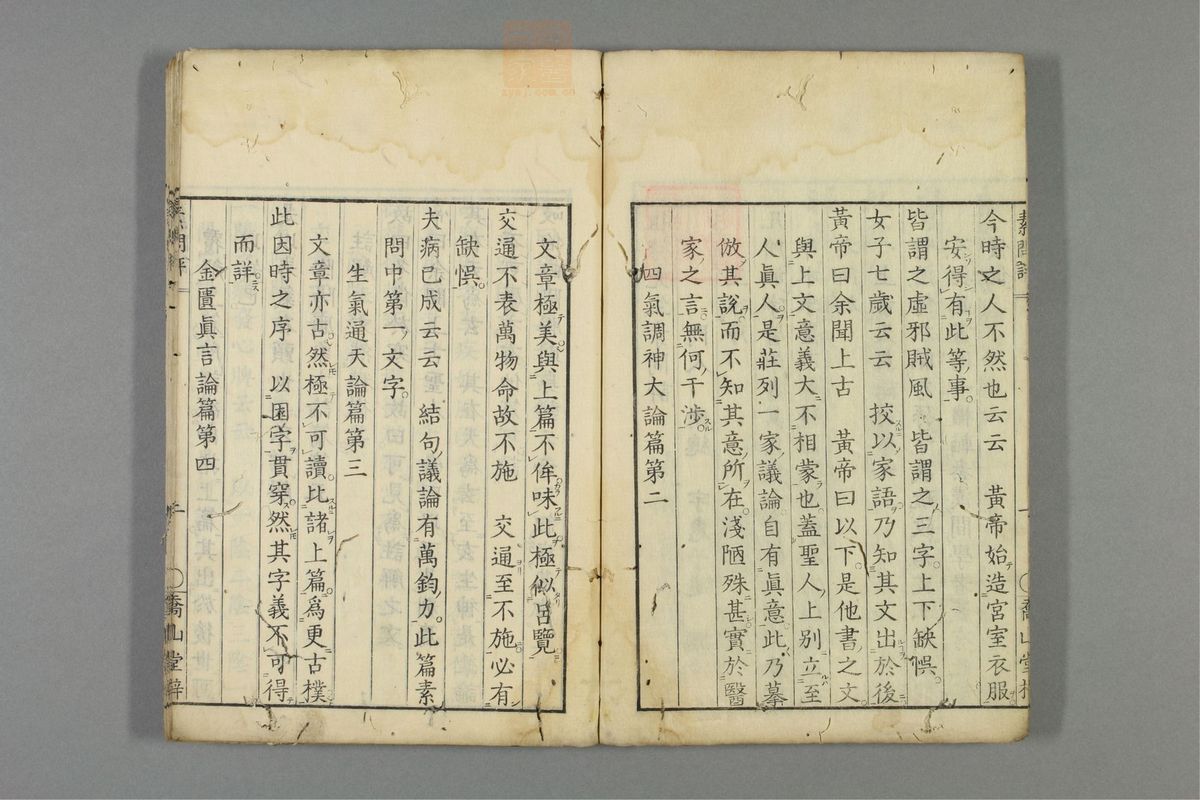 素問評
今時之人不然也云云　黃帝始造宮室衣服
安得有此等事
皆謂之虛邪賊風　皆謂之三字上下缺悞
女子七歲云云　挍以家語乃知其文出於後
黃帝曰余聞上古　黃帝曰以下是他書之文
與上文意義大不相蒙也蓋聖人上別立至
人眞人是莊列一家議論自有眞意此乃摹
倣其說而不知其意所在淺陋殊甚實於醫
家之言無何干涉
四氣調神大論篇第二
喬山堂
文章極美與上篇不侔味此極似呂覽
交通不表萬物命故不施　交通至不施必有
缺悞
夫病已成云云　結句議論有萬鈞力此篇素
問中第一文字
生氣通天論篇第三
文章亦古然極不可讀比諸上篇爲更古樸
此因時之序　以困字貫穿然其字義不可得
而詳
金匱眞言論篇第四
問評
一
喬山堂梓